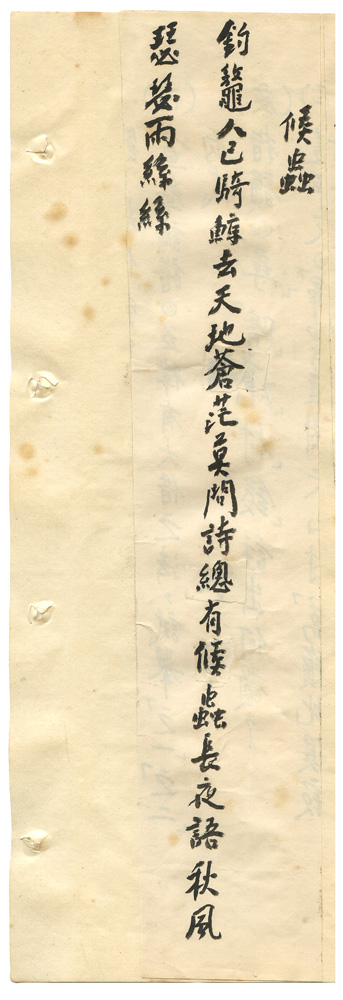 候蟲
釣鼇人已騎鯨去天地蒼茫莫問詩總有候蟲長夜語秋風
瑟瑟雨絲絲